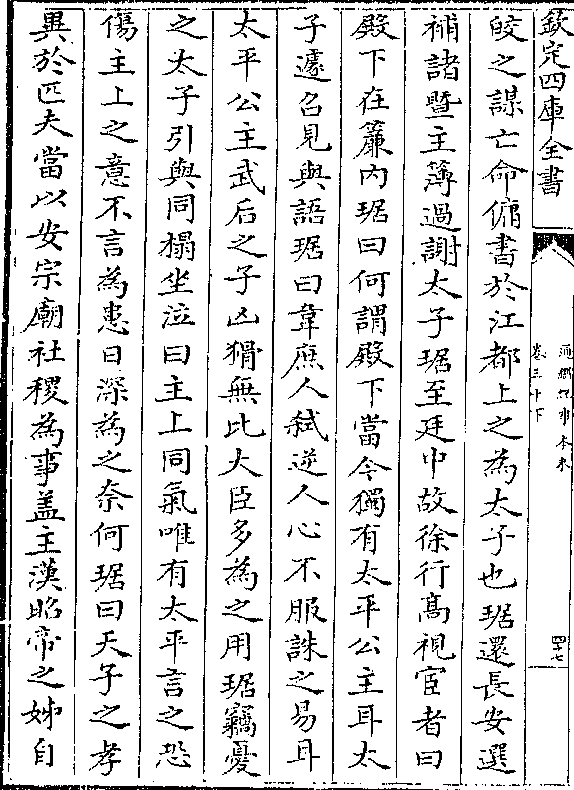 欽定四庫全書
通鑑紀事本末
卷三十下
四十七
皎之謀亡命傭書於江都上之為太子也琚還長安選
補諸暨主簿過謝太子琚至廷中故徐行髙視宦者曰
殿下在簾内琚曰何謂殿下當今獨有太平公主耳太
子遽召見與語琚曰韋庶人弑逆人心不服誅之易耳
太平公主武后之子凶猾無比大臣多為之用琚竊憂
之太子引與同榻坐泣曰主上同氣唯有太平言之恐
傷主上之意不言為患日深為之奈何琚曰天子之孝
異於匹夫當以安宗廟社稷為事盖主漢昭帝之姊自